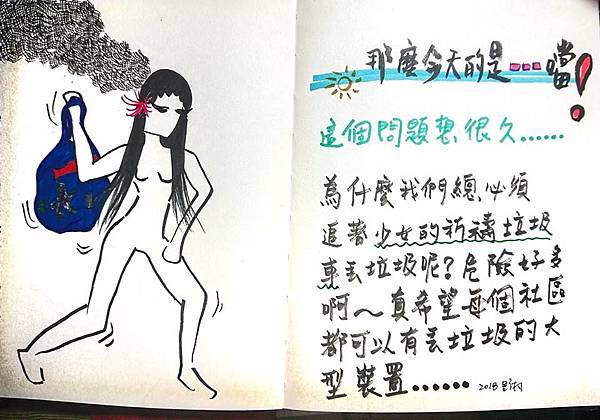 那麼今天的是……噹!
這個問題想很久……
為什麼我們總必須
追著少女的祈禱垃圾
車丟垃圾呢?危險好多
啊~真希望每個社區
都可以有丟垃圾的大
型裝置……2018